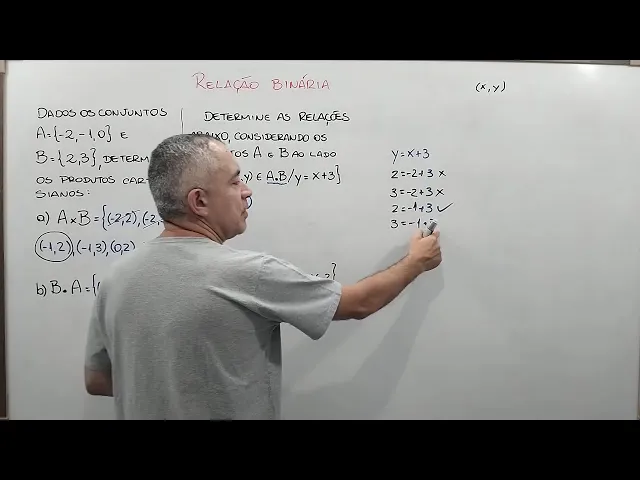 RELAÇÃO BINÁRIA
(x,y)
DADOS OS CONJUNTOS
A={-2,-1,0} E
B={2,3}, DETERM
OS PRODUTOS CAR
SIANOS:
a) A×B={(-2,2),(-2,
(-1,2),(-1,3),(0,2)
b) B•A={
DETERMINE AS RELAÇÕES
ABAIXO, CONSIDERANDO OS
TOS A E B AO LADO
,y) ∈ A•B/y=x+3}
y=x+3
2=-2+3 x
3=-2+3 x
2=-1+3 ✓
3=-1+3